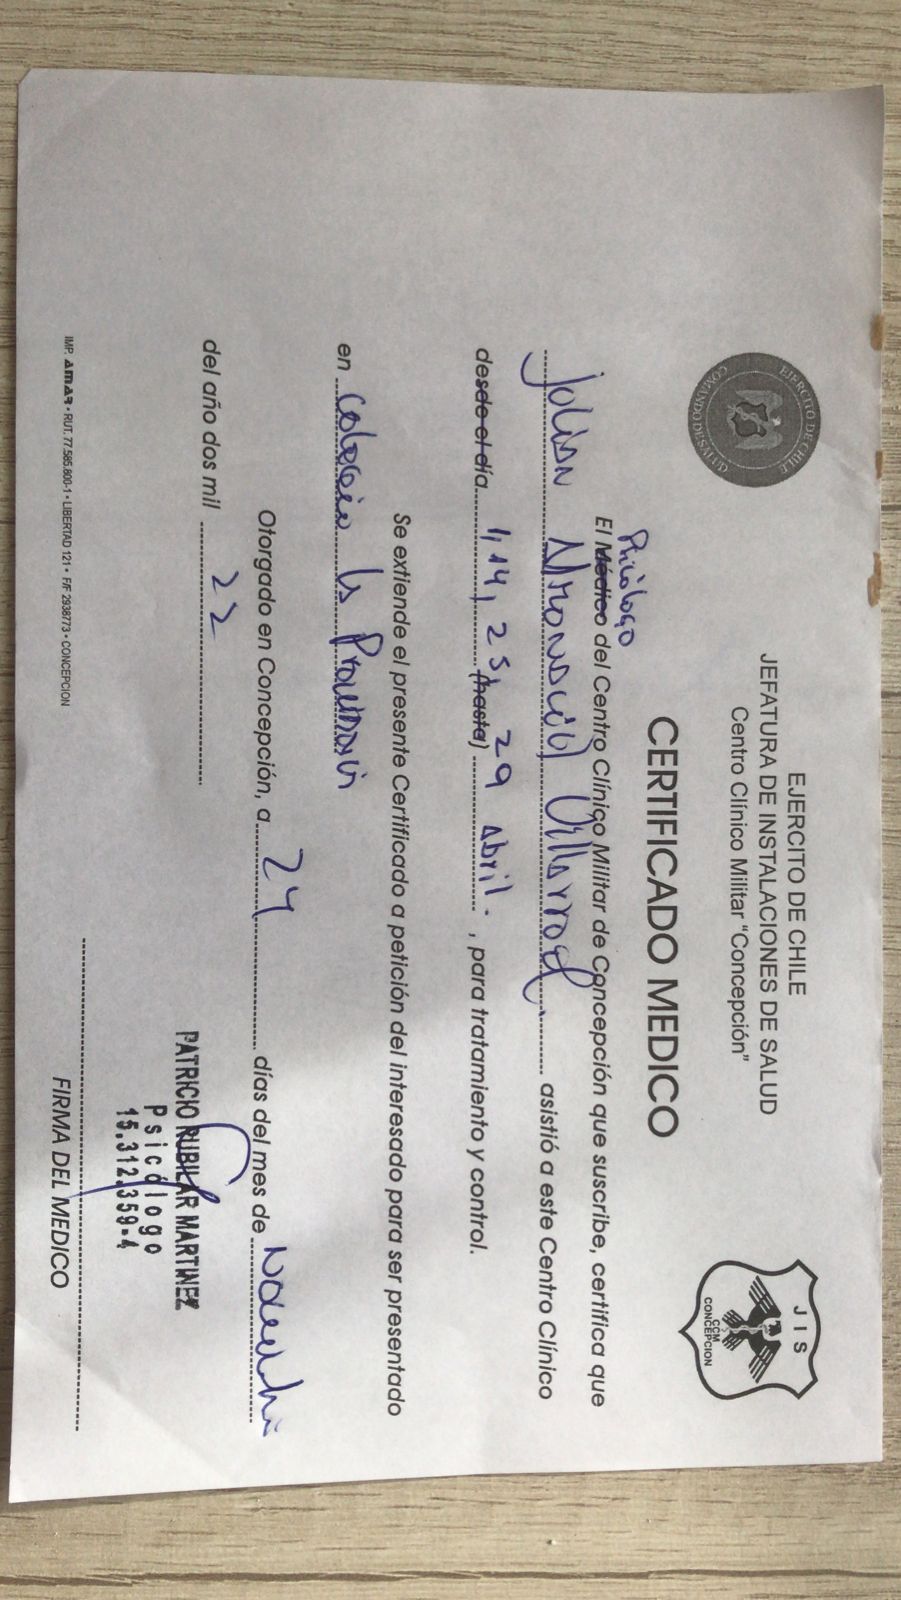 EJERCITO DE CHILE
COMANDO DE SALUD
EJERCITO DE CHILE
JEFATURA DE INSTALACIONES DE SALUD
Centro Clínico Militar "Concepción"
JIS
CCM
CONCEPCION
CERTIFICADO MEDICO
Psicólogo
El Médico del Centro Clínico Militar de Concepción que suscribe, certifica que
Julian Villarroel asistió a este Centro Clínico
desde el día 1, 14, 25, (hasta) 29 abril. , para tratamiento y control.
Se extiende el presente Certificado a petición del interesado para ser presentado
en Colegio la
Otorgado en Concepción, a 24 días del mes de
del año dos mil 22
PATRICIO RUBILAR MARTINEZ
Psicólogo
15.312.359-4
FIRMA DEL MEDICO
IMP. AMAR • RUT. 77.585.800-1 • LIBERTAD 121 • F/F 2938773 • CONCEPCION